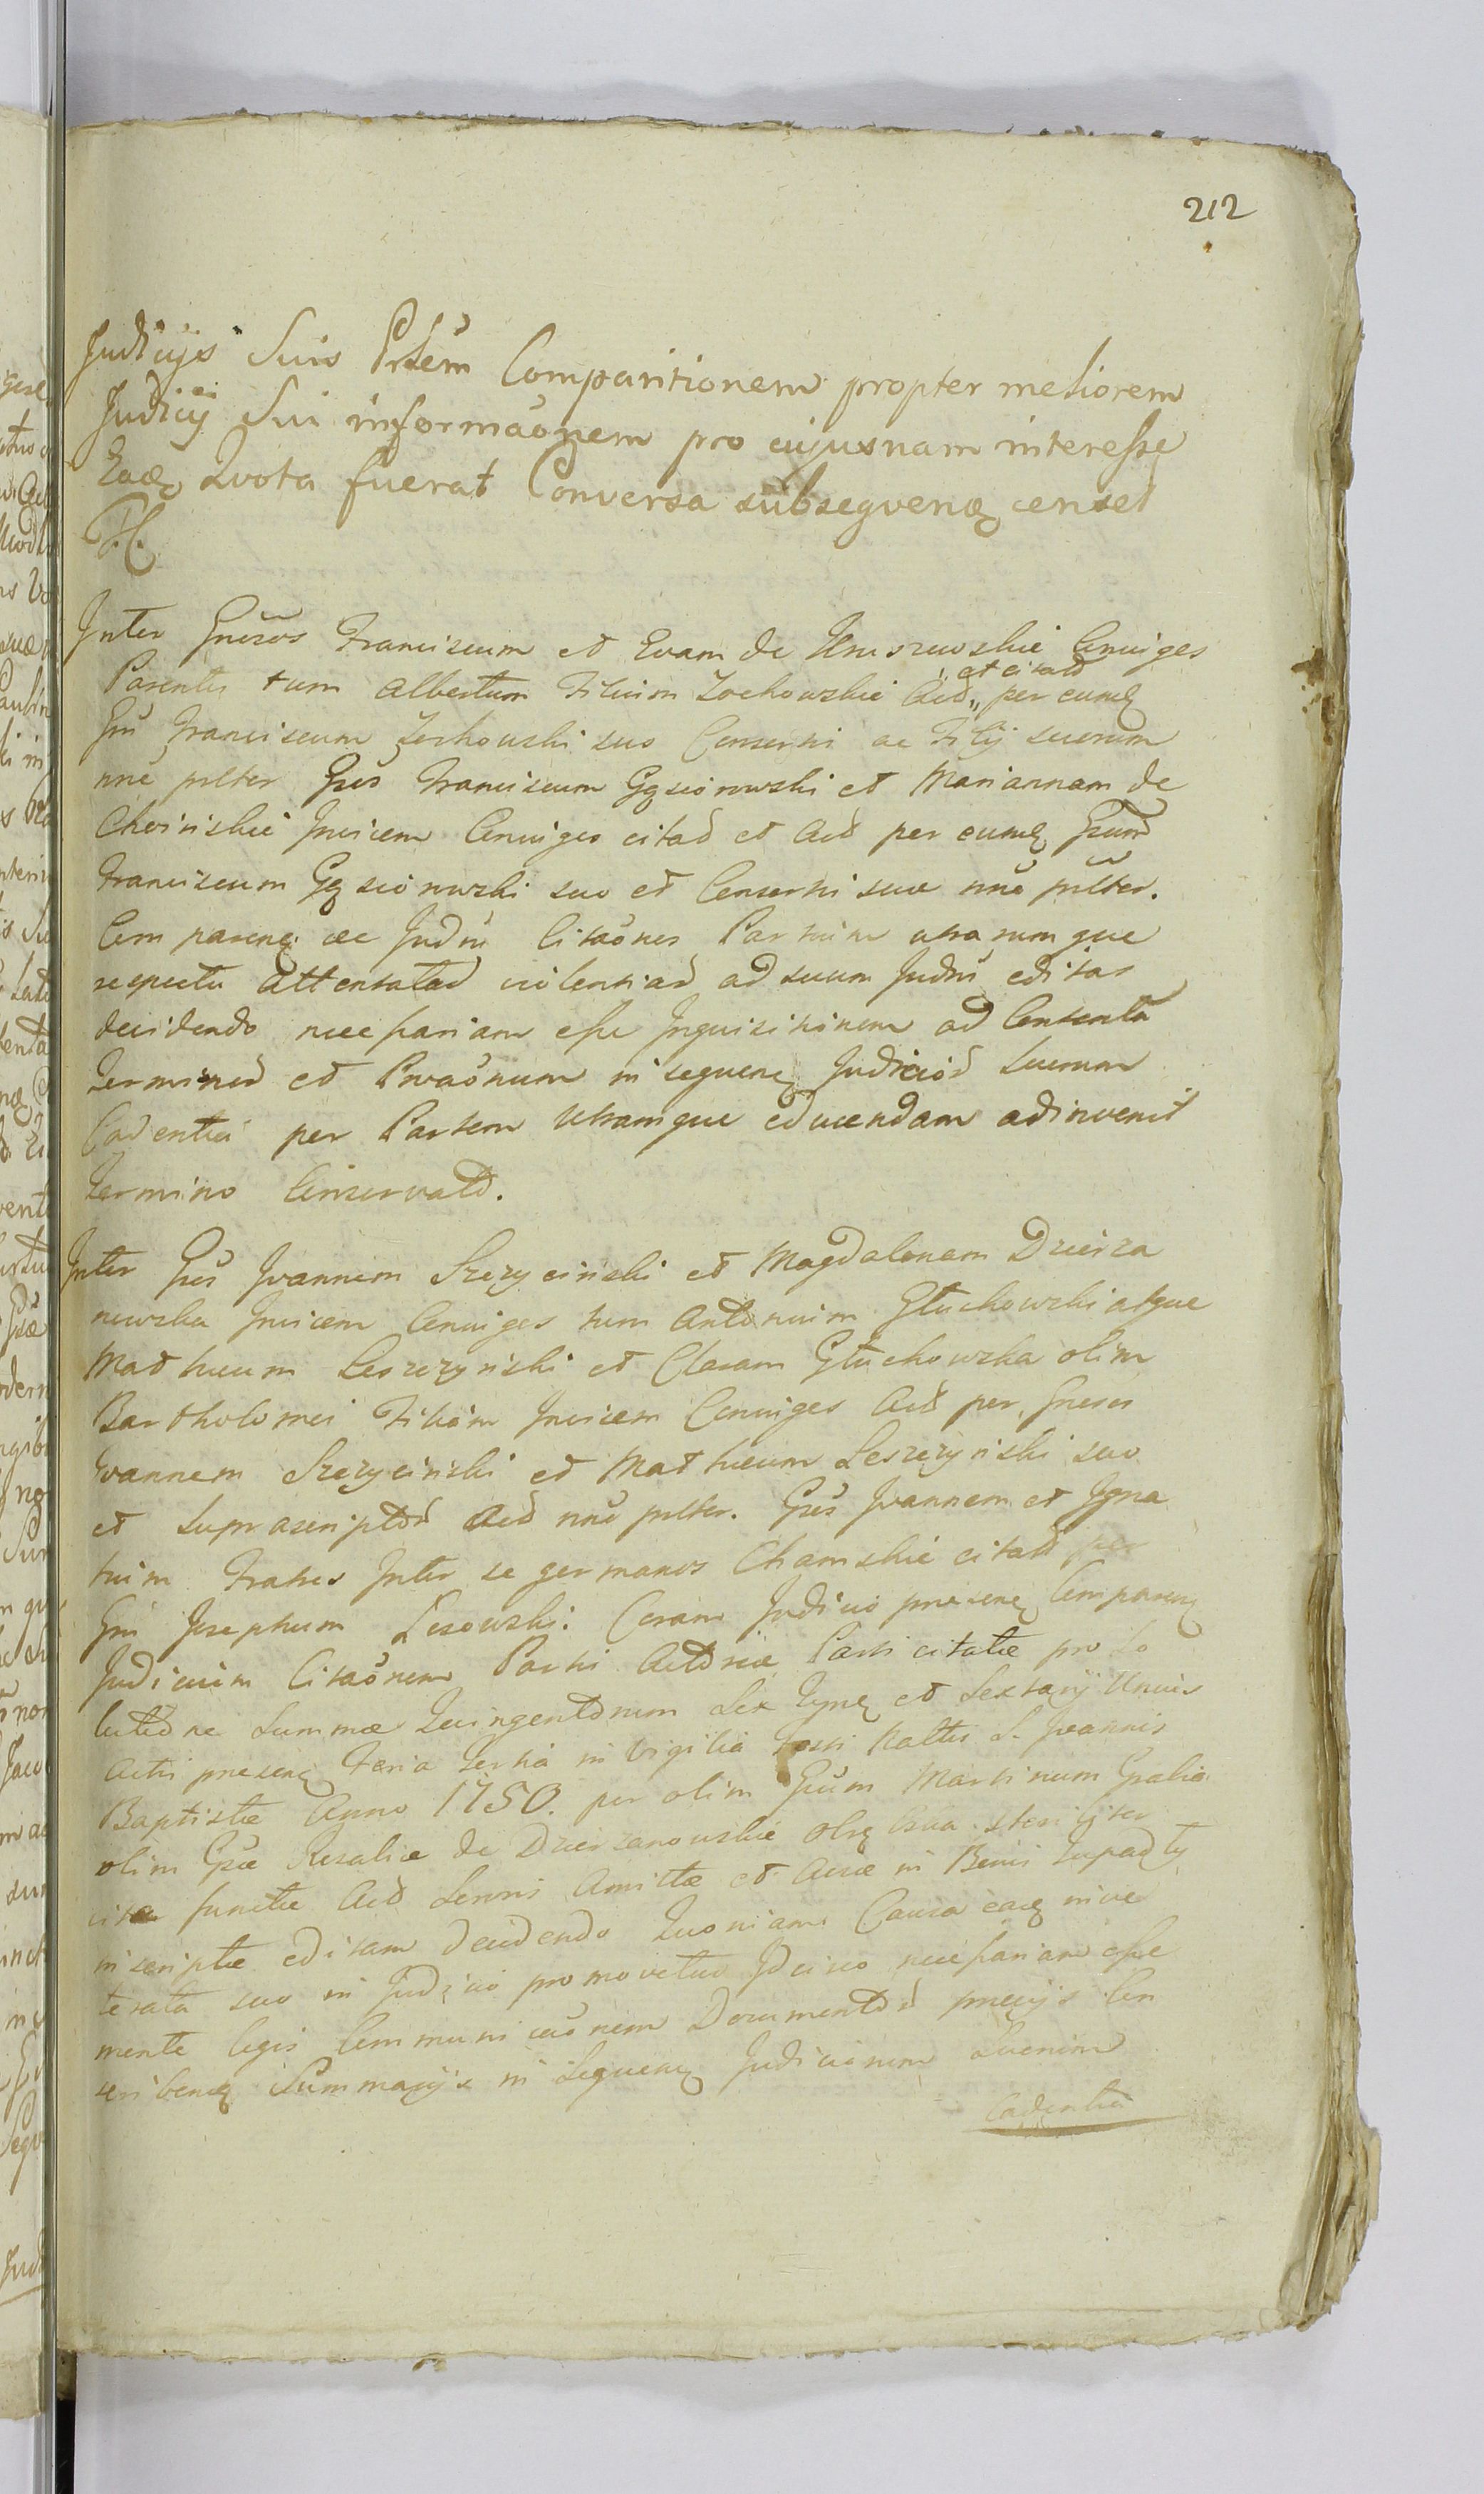 212
Judicijs Suis Prtem Comparitionem propter meliorem
Judicij Sui informaõnem pro cujusnam interesse
Eaq Qvota fuerat Conversa subseqvenq censet
Inter Gnerosos Franciscum et Evam de Hruszewskie Conjuges
Parentes tum Albertum Filium Zochowskie Act et citat per eumq
Gnu Franciscum Zochowski suo Consorti ac Filij suorum
nne prlter Gsos Franciscum Gąsiorowski et Mariannam de
Choinskie Invicem Conjuges citat et Act per eumq Gsum
Franciscum Gąsiorowski suo et Consortis suae nne prlter.
Comparenq ac Judm Citaõnes Partium utrarumque
respectu Attentatar violentiar ad suum Judm editas
decidendo necessariam esse Inquisitionem ad Contenta
Terminor et Prvaõnum in sequenq Judicior suorum
Cadentia per Partem utramque educendam adinvenit
Termino Conservato.
Inter Gsos Joannem Szczyciński et Magdalenam Dzierza
nowska Invicem Conjuges tum Antonium Głuchowski atque
Mathaeum Leszczyński et Claram Głuchowska olim
Bartholomei Filiam Invicem Conjuges Act per Gnerosos
Joannem Szczyciński et Mathaeum Leszczyński suo
et suprascriptor Act nne prlter. Gsos Joannem et Igna
tium Fratres Inter se germanos Chamskie citat per
Gnu Josephum Lisowski. Coram Judicio praesenq Comparenq
Judicium Citaõnem Parti Actoreae Parti citatae pro so
lutione Summae Quingentorum Sex Tynq et Sextarij Unius
Actis praesenq Feria Tertia in Vigilia Festi Naltis S. Joannis
Baptistae Anno 1750. per olim Gsum Martinum Gratia
olim Gsae Rosaliae de Dzierzanowskie steriliter
vita functae Act Sororis Amitae et Aviae in Bonis
inscriptae editam decidendo Quoniam Causa eaq inve
terata suo in Judicio promovetur Idcirco necessariam esse
mente legis Communicaõnem Documentor praevijs Con
scribenq Summarijs in Sequenq Judiciorum Suorum
Cadentia